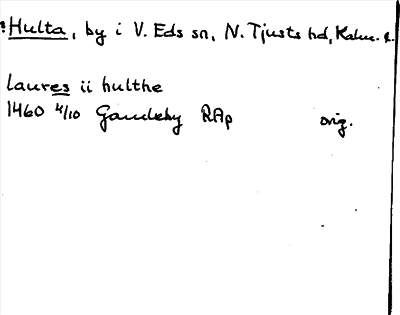 ? Hulta, by i V. Eds sn, N. Tjusts hd, Kalm. l.
laures ii hulthe
1460 4/10 Gamleby RAp orig.